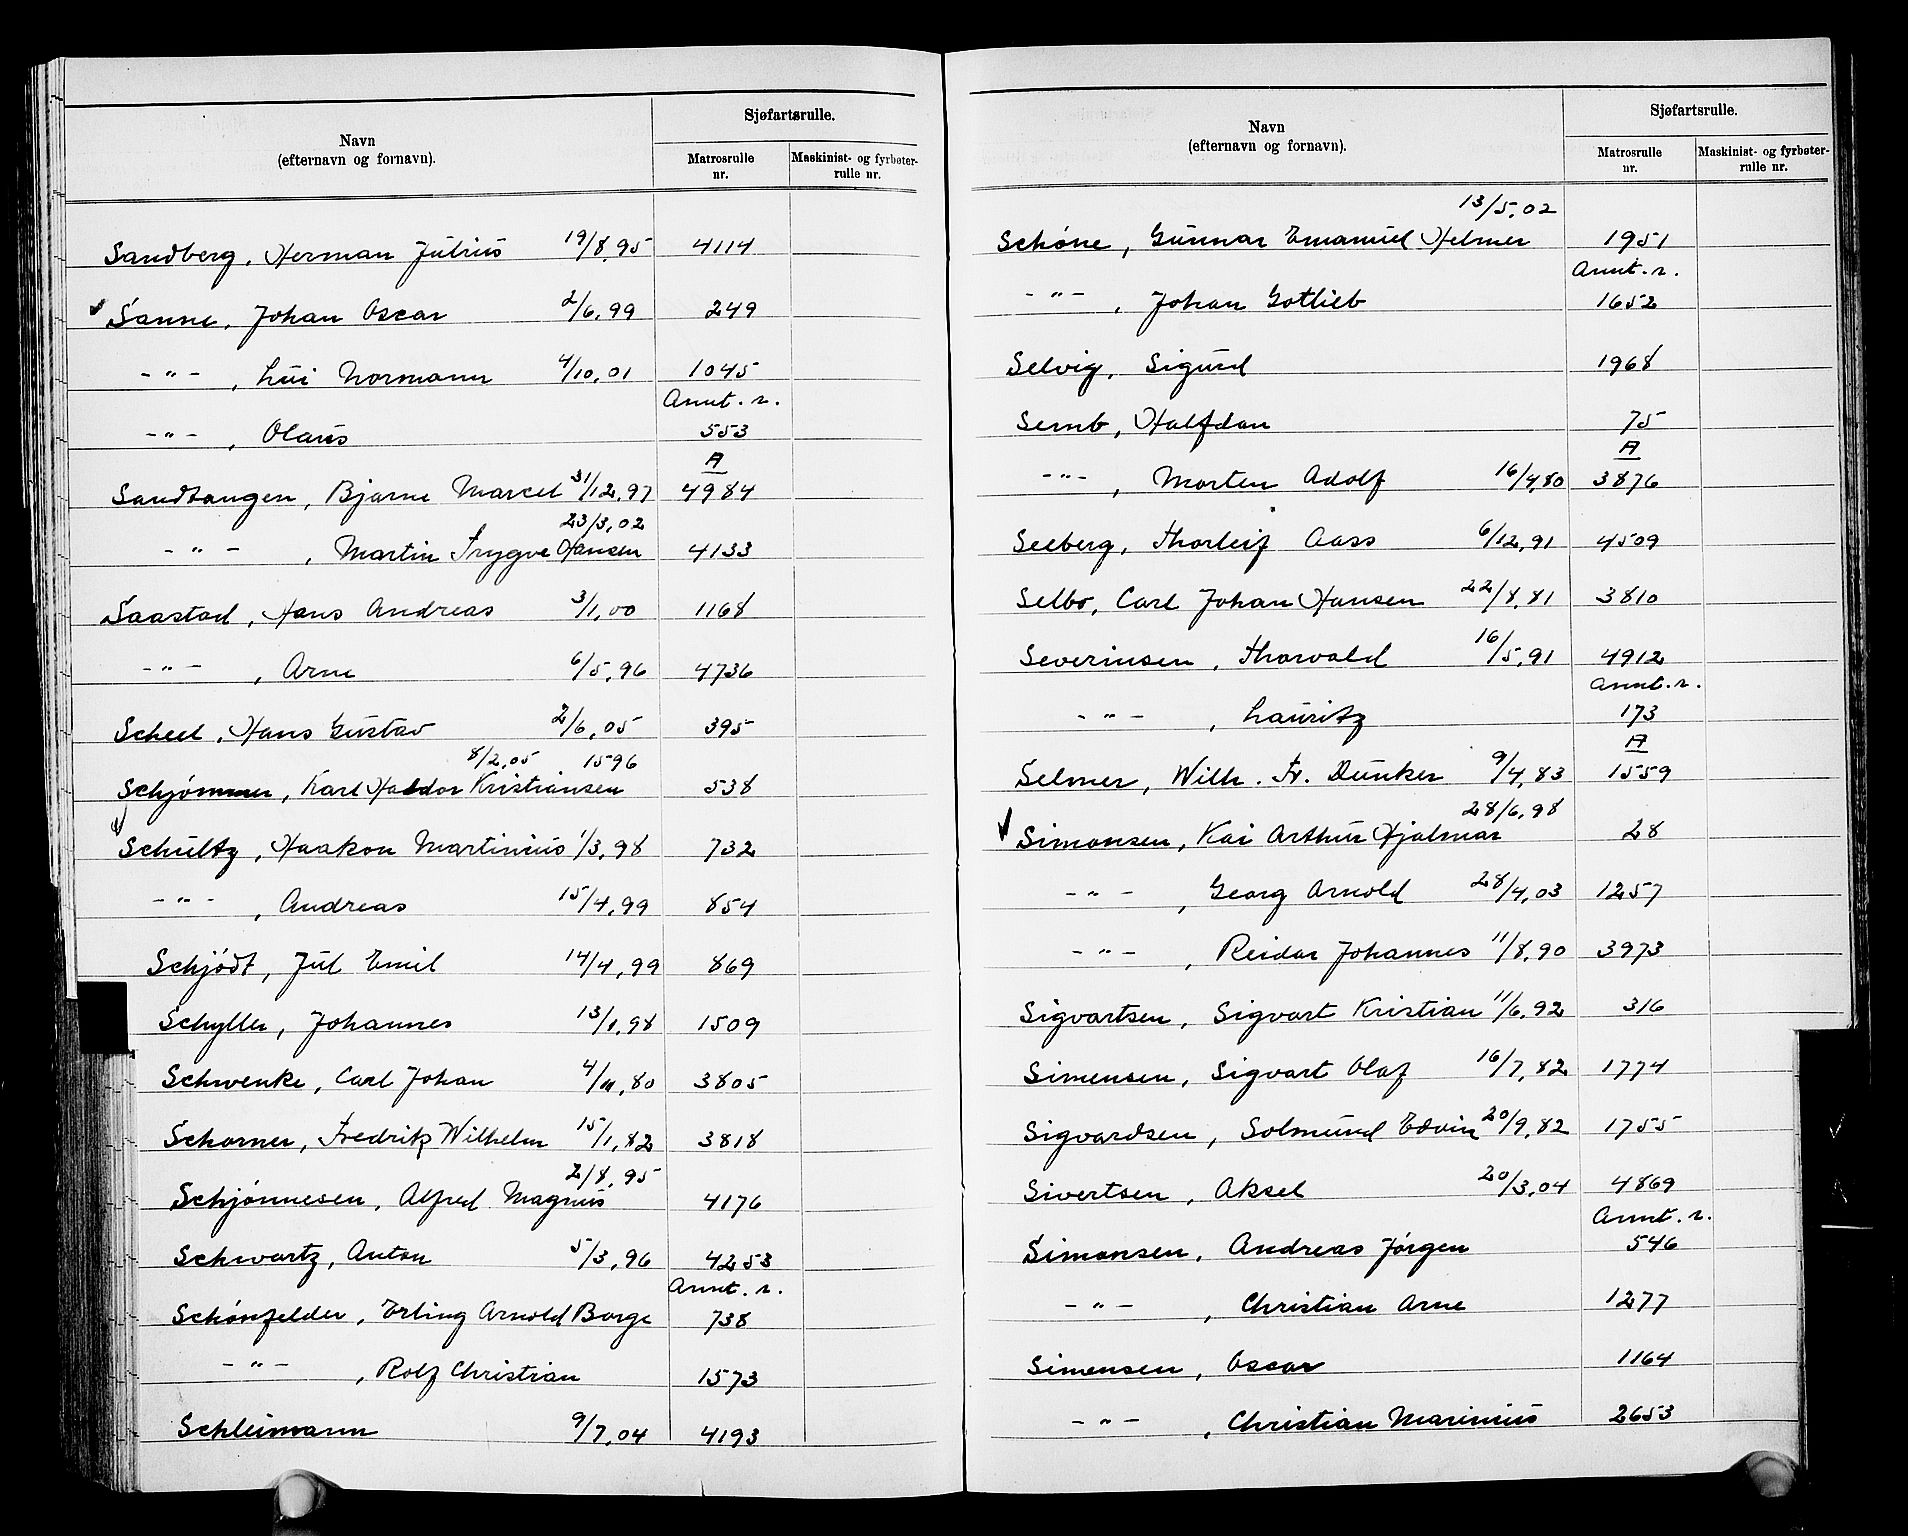 Navn
(efternavn og fornavn).
Sjøfartsrulle.
Matrosrulle
nr.
Maskinist- og fyrbøter-
rulle nr.
Sandberg, Herman Julius 19/8.95 4114
Sanne, Johan Oscar 2/6.99 249
-"- , Lui Normann 4/10.01 1045
Annt. r.
-"- , Olaus 553
A
Sandtangen, Bjarne Marcel 31/12.97 4984
23/3.02
-"- , Martin Trygve Hansen 4133
Saastad, Hans Andreas 3/1.00 1168
-"- , Arne 6/5.96 4736
Scheel, Hans Gustav 2/6.05 395
8/2.05 1596
Schjømmer, Karl Haldor Kristiansen 538
Schultz, Haakon Martinius 1/3.98 732
-"- , Andreas 15/4.99 854
Schjödt, Jul Emil 14/4.99 869
Schyller, Johannes 13/1.98 1509
Schwenke, Carl Johan 4/11.80 3805
Schorner, Fredrik Wilhelm 15/1.82 3818
2/8.95
Schjønnesen, Alfred Magnus 4176
Schwartz, Anton 5/3.96 4253
Annt. r.
Schönfelder, Erling Arnold Borge 738
-"- , Rolf Christian 1573
Schleimann 9/7.04 4193
Navn
(efternavn og fornavn).
Sjøfartsrulle.
Matrosrulle
nr.
Maskinist- og fyrbøter-
rulle nr.
13/5.02
Schöne, Gunnar Emanuel Helmer 1951
Annt. r.
-"- , Johan Gotlieb 1652
Selvig, Sigurd 1968
Semb, Halfdan 75
A
-"- , Morten Adolf 16/4.80 3876
Seeberg, Thorleif Aass 6/12.91 4509
Selbo, Carl Johan Hansen 22/8.81 3810
Severinsen, Thorvald 16/5.91 4912
Annt. r.
-"- , Lauritz 173
A
Selmer, Wilh. Fr. Dunker 9/4.83 1559
28/6.98
Simonsen, Kai Arthur Hjalmar 28
-"- , Georg Arnold 28/4.03 1257
-"- , Reidar Johannes 11/8.90 3973
Sigvartsen, Sigvart Kristian 11/6.92 316
Simensen, Sigvart Olaf 16/7.82 1774
Sigvardsen, Solmund Edvin 20/9.82 1755
Sivertsen, Aksel 20/3.04 4869
Annt. r.
Simonsen, Andreas Jörgen 546
-"- , Christian Arne 1277
Simensen, Oscar 1164
-"- , Christian Marinius 2653